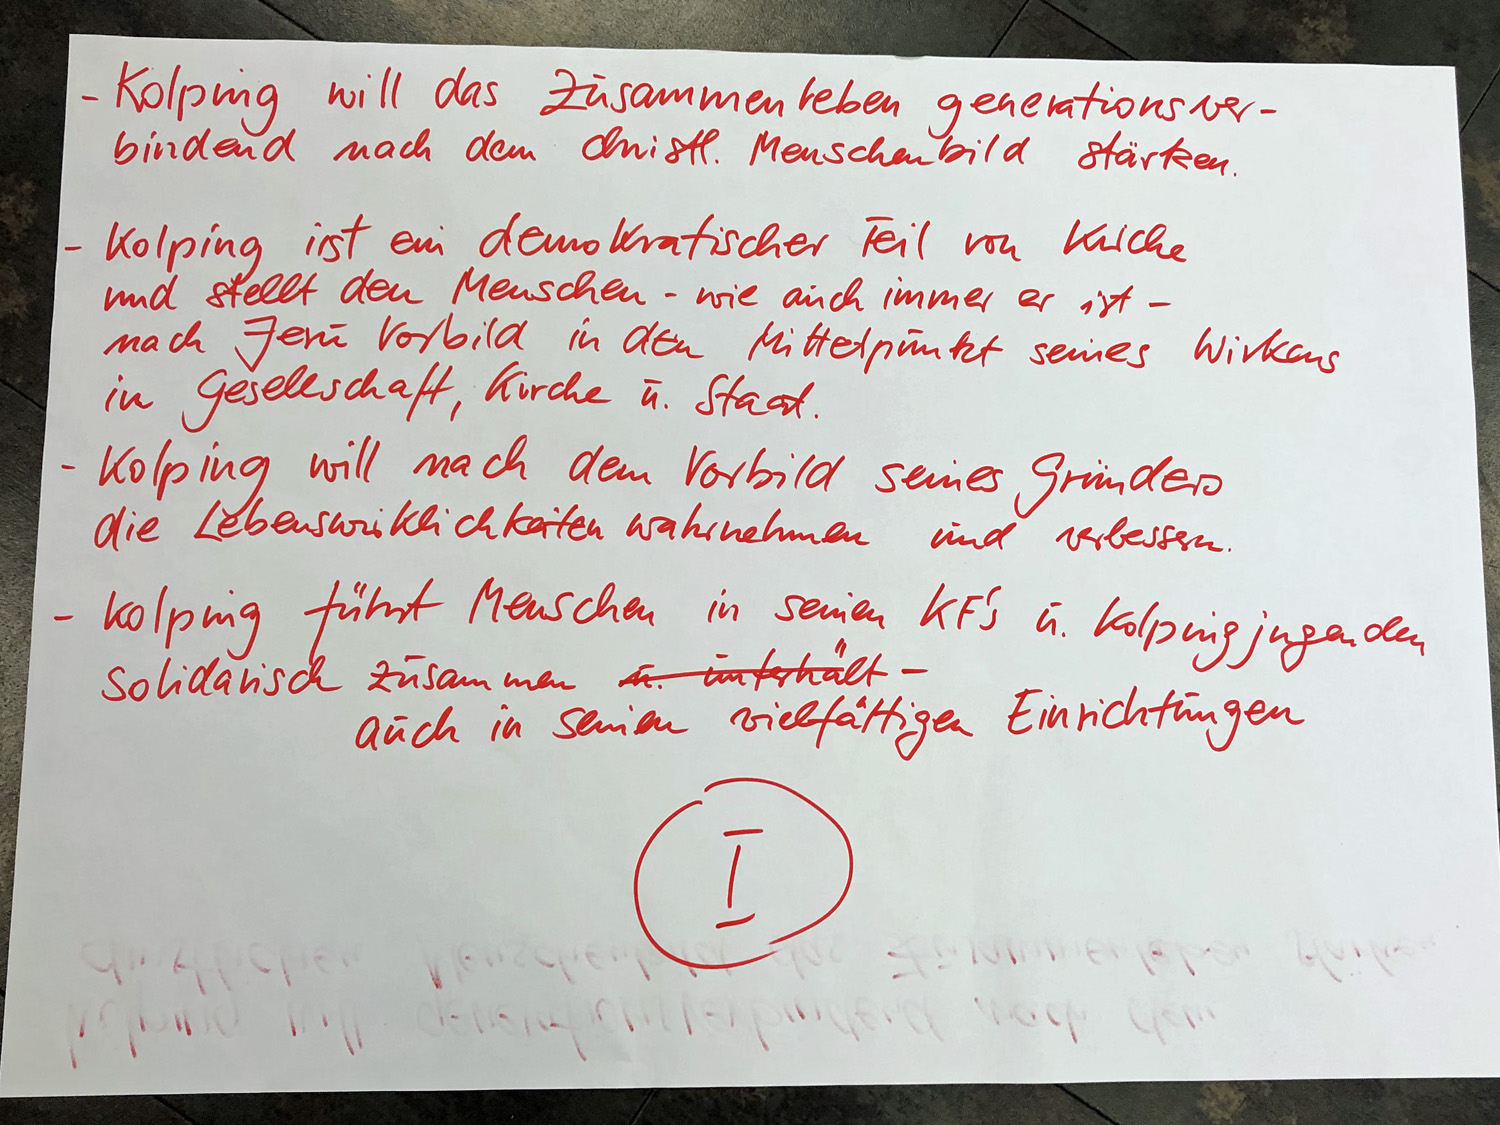 - Kolping will das Zusammenleben generationsver-
bindend nach dem christl. Menschenbild stärken.
- Kolping ist ein demokratischer Teil von Kirche
und stellt den Menschen - wie auch immer er ist -
nach Jesu Vorbild in den Mittelpunkt seines Wirkens
in Gesellschaft, Kirche u. Staat.
- Kolping will nach dem Vorbild seines Gründers
die Lebenswirklichkeiten wahrnehmen und verbessern.
- Kolping führt Menschen in seinen KF's u. Kolpingjugenden
solidarisch zusammen u. unterhält -
auch in seinen vielfältigen Einrichtungen
I